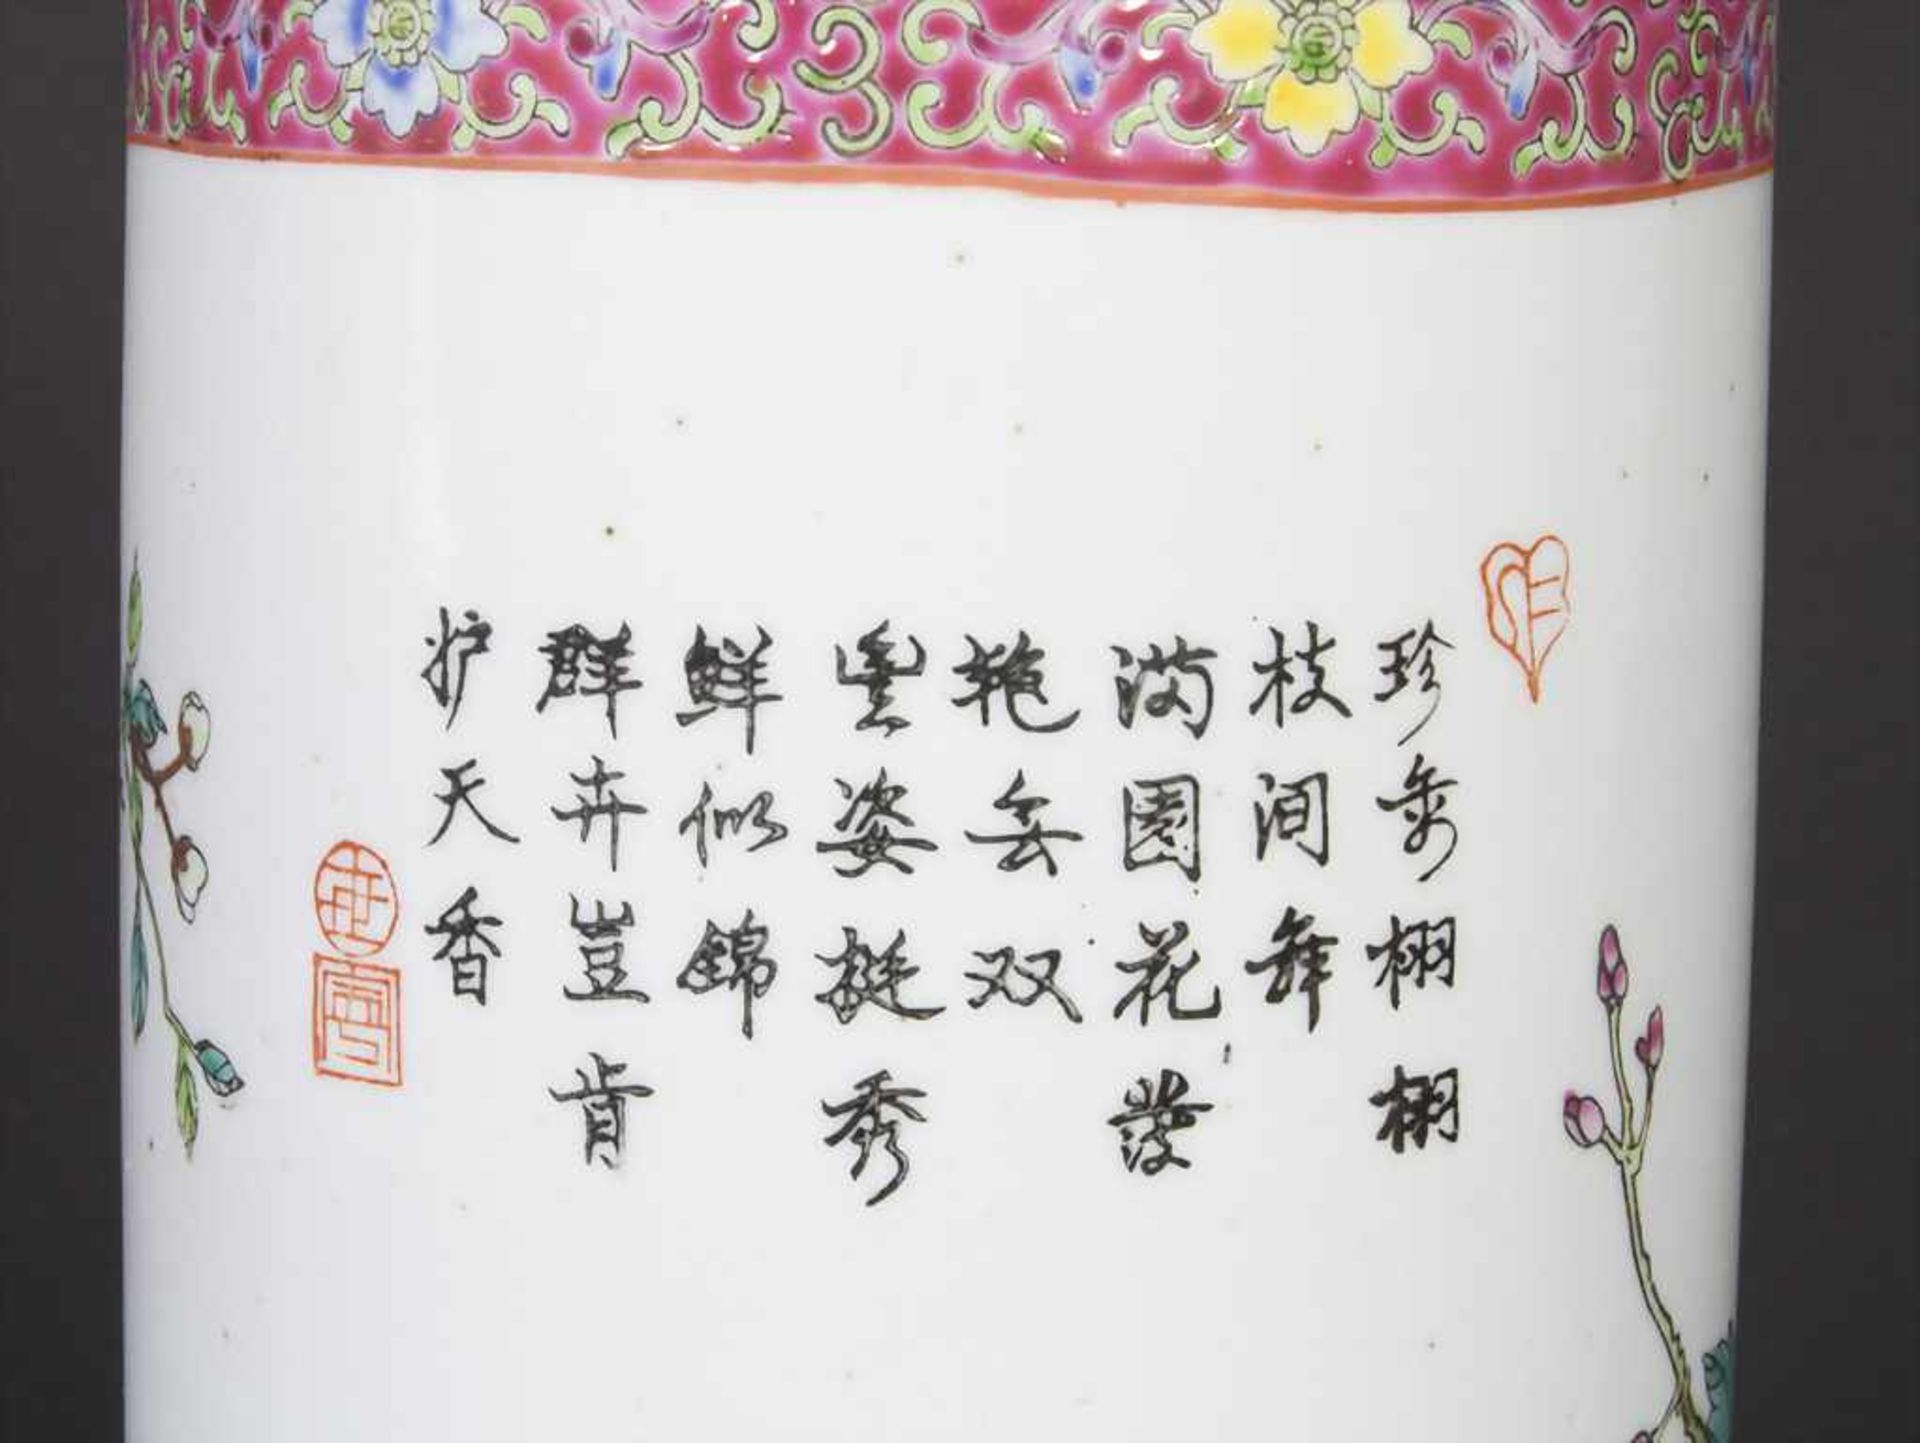 珍禽栩栩
枝间舞
满园花发
艳无双
丰姿挺秀
鲜似锦
群卉岂肯
妒天香